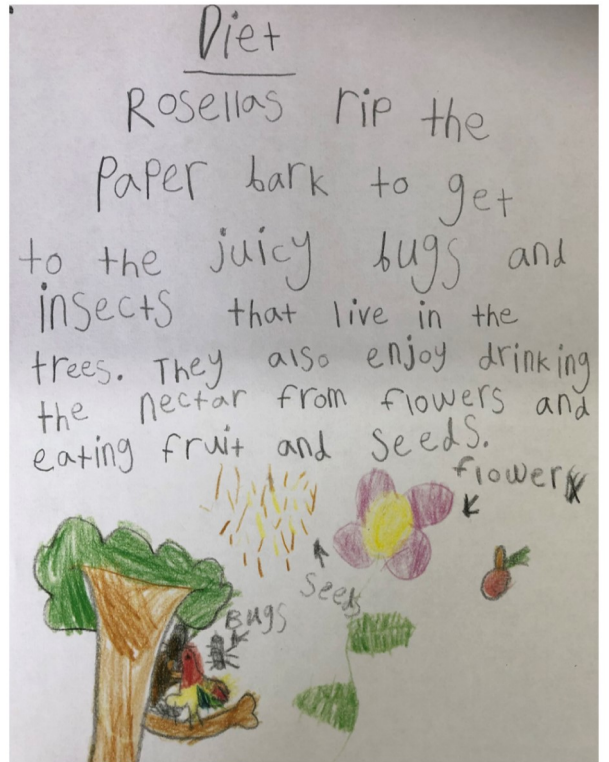 Diet
Rosellas rip the
Paper bark to get
to the juicy bugs and
insects that live in the
trees. They also enjoy drinking
the nectar from flowers and
eating fruit and seeds.
flower
seeds
Bugs